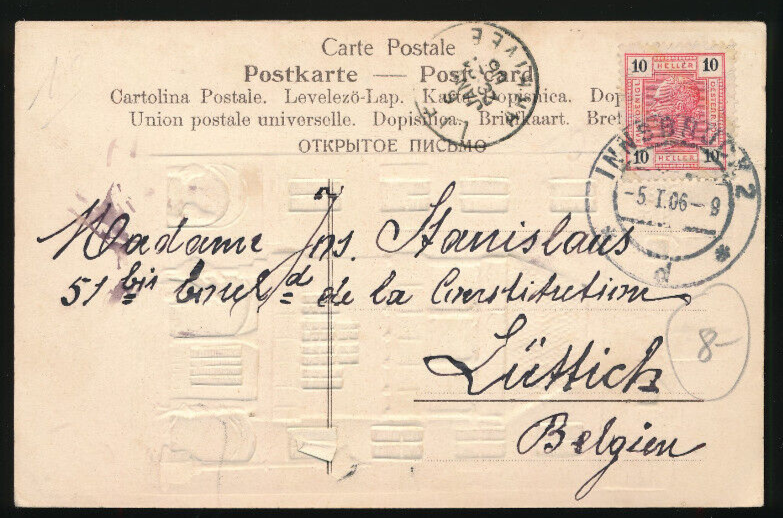 Carte Postale
Postkarte — Post card
Cartolina Postale. Levelező-Lap. Dopisnica.
Union postale universelle. Dopisnica. Briefkaart.
ОТКРЫТОЕ ПИСЬМО
10 HELLER 10
10 HELLER 10
INNSBRUCK 2
-5.I.06-9
*d*
Madame Jos. Stanislaus
51 bis Boul.d de la Constitution
Lüttich
Belgien
8-